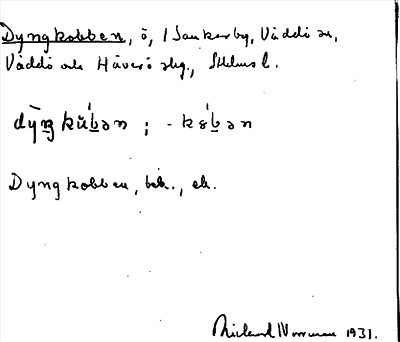 Dyngkobben, ö, i Sankarby, Väddö sn,
Väddö och Häverö skg., Sthlms l.
dy̆ŋkŭbən ; - kɞbən
Dyngkobben, beb., ek.
Rickard Norrman 1931.